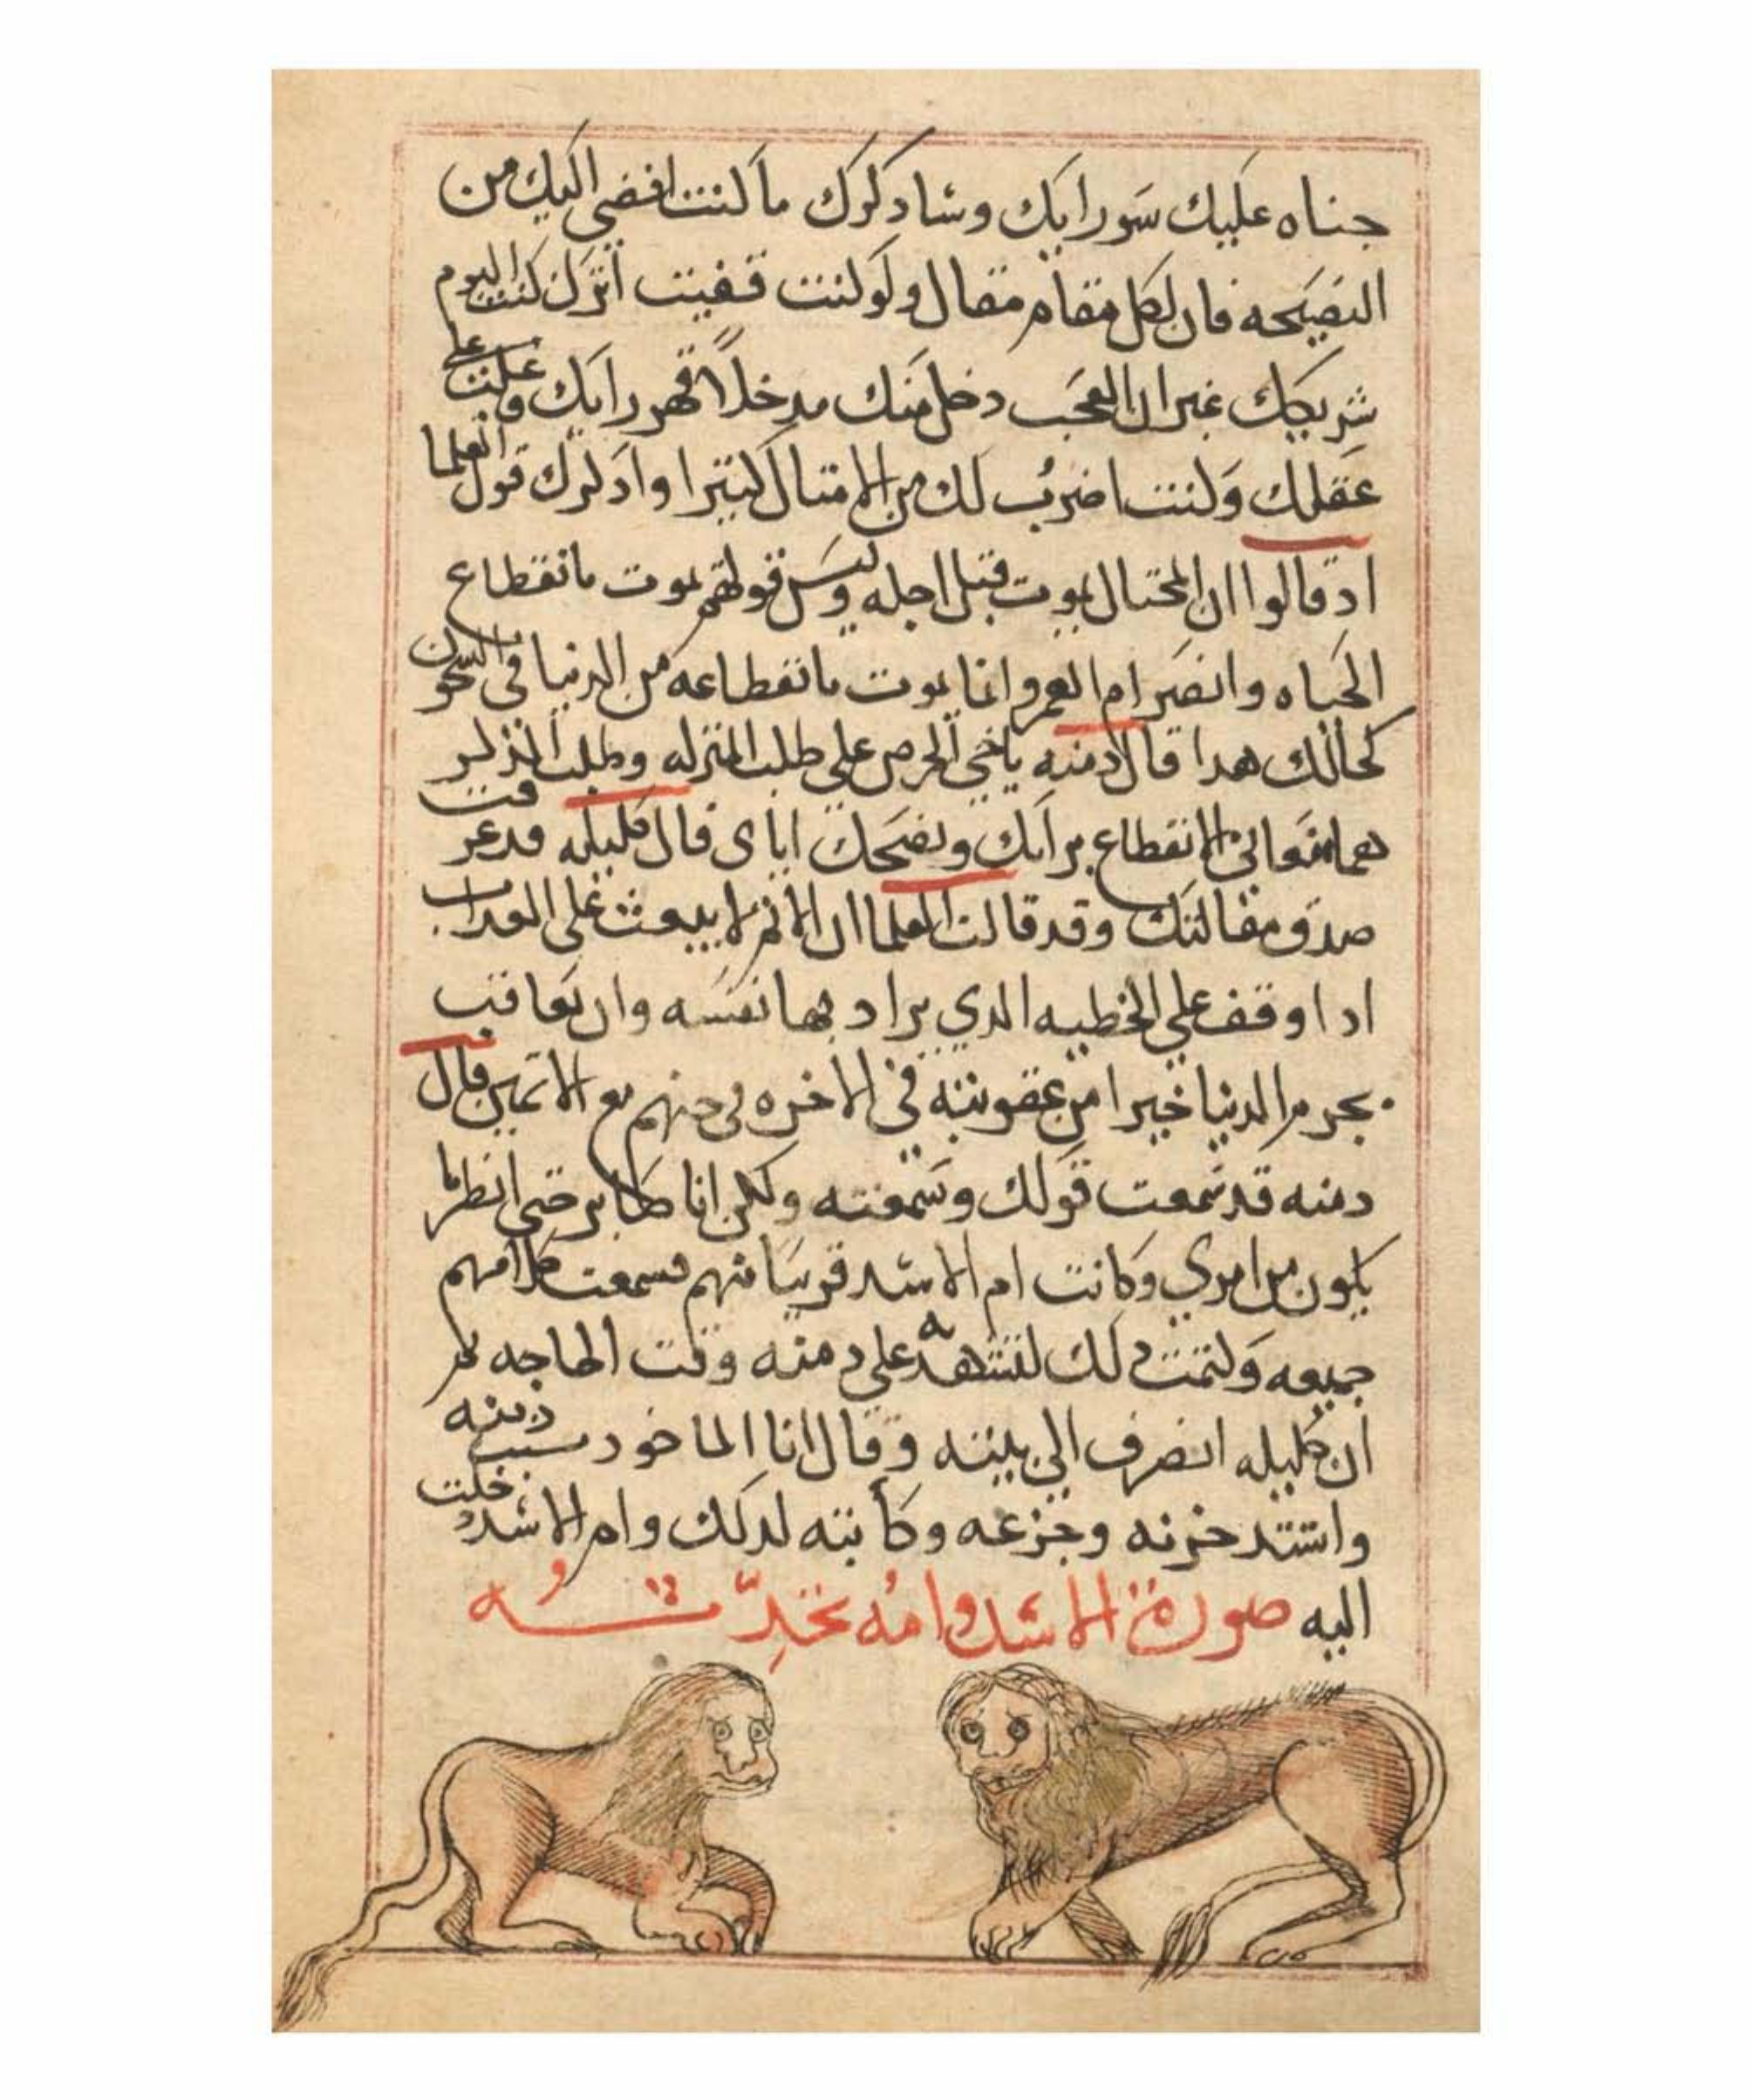 جناه عليك سورايك وساد كرك ما كنت افضي اليك من
النصيحه فان لكل مقام مقال ولو كنت قفيت اترك كنت اليوم
شريكك غير ان العجب دخل منك مدخلا قهر رايك وغلب علي
عقلك وكنت اضرب لك من الامتال كتيرا وادكرك قول العلما
اد قالوا ان المحتال يموت قبل اجله وليس قولهم يموت بانقطاع
الحياه وانصرام العمر وانما يموت بانقطاعه من الدنيا في السجون
كحالك هدا قال دمنه ياخي الحرص علي طلب المنزله وطلب
الانقطاع برايك ونصحك اياي قال كليله قد عرفت
صدق مقالتك وقد قالت العلما ان الاتم لا يبعث علي العداب
ادا وقف علي الخطيه الدي يراد بها نفسه وان يعاقب
بجرم الدنيا خيرا من عقوبته في الاخره في جهنم مع الاتمين قال
دمنه قد سمعت قولك وسمعته ولكن انا صابر حتي انظر ما
يكون من امري وكانت ام الاسد قريبا منهم فسمعت كلامهم
جميعه وكتمت دلك لتشهد به علي دمنه وقت الحاجه تم
ان كليله انصرف الي بيته وقال انا الماخود بسبب دمنه
واشتد حزنه وجزعه وكابته لدلك وام الاسد دخلت
اليه صورة الاسد وامه تحدته